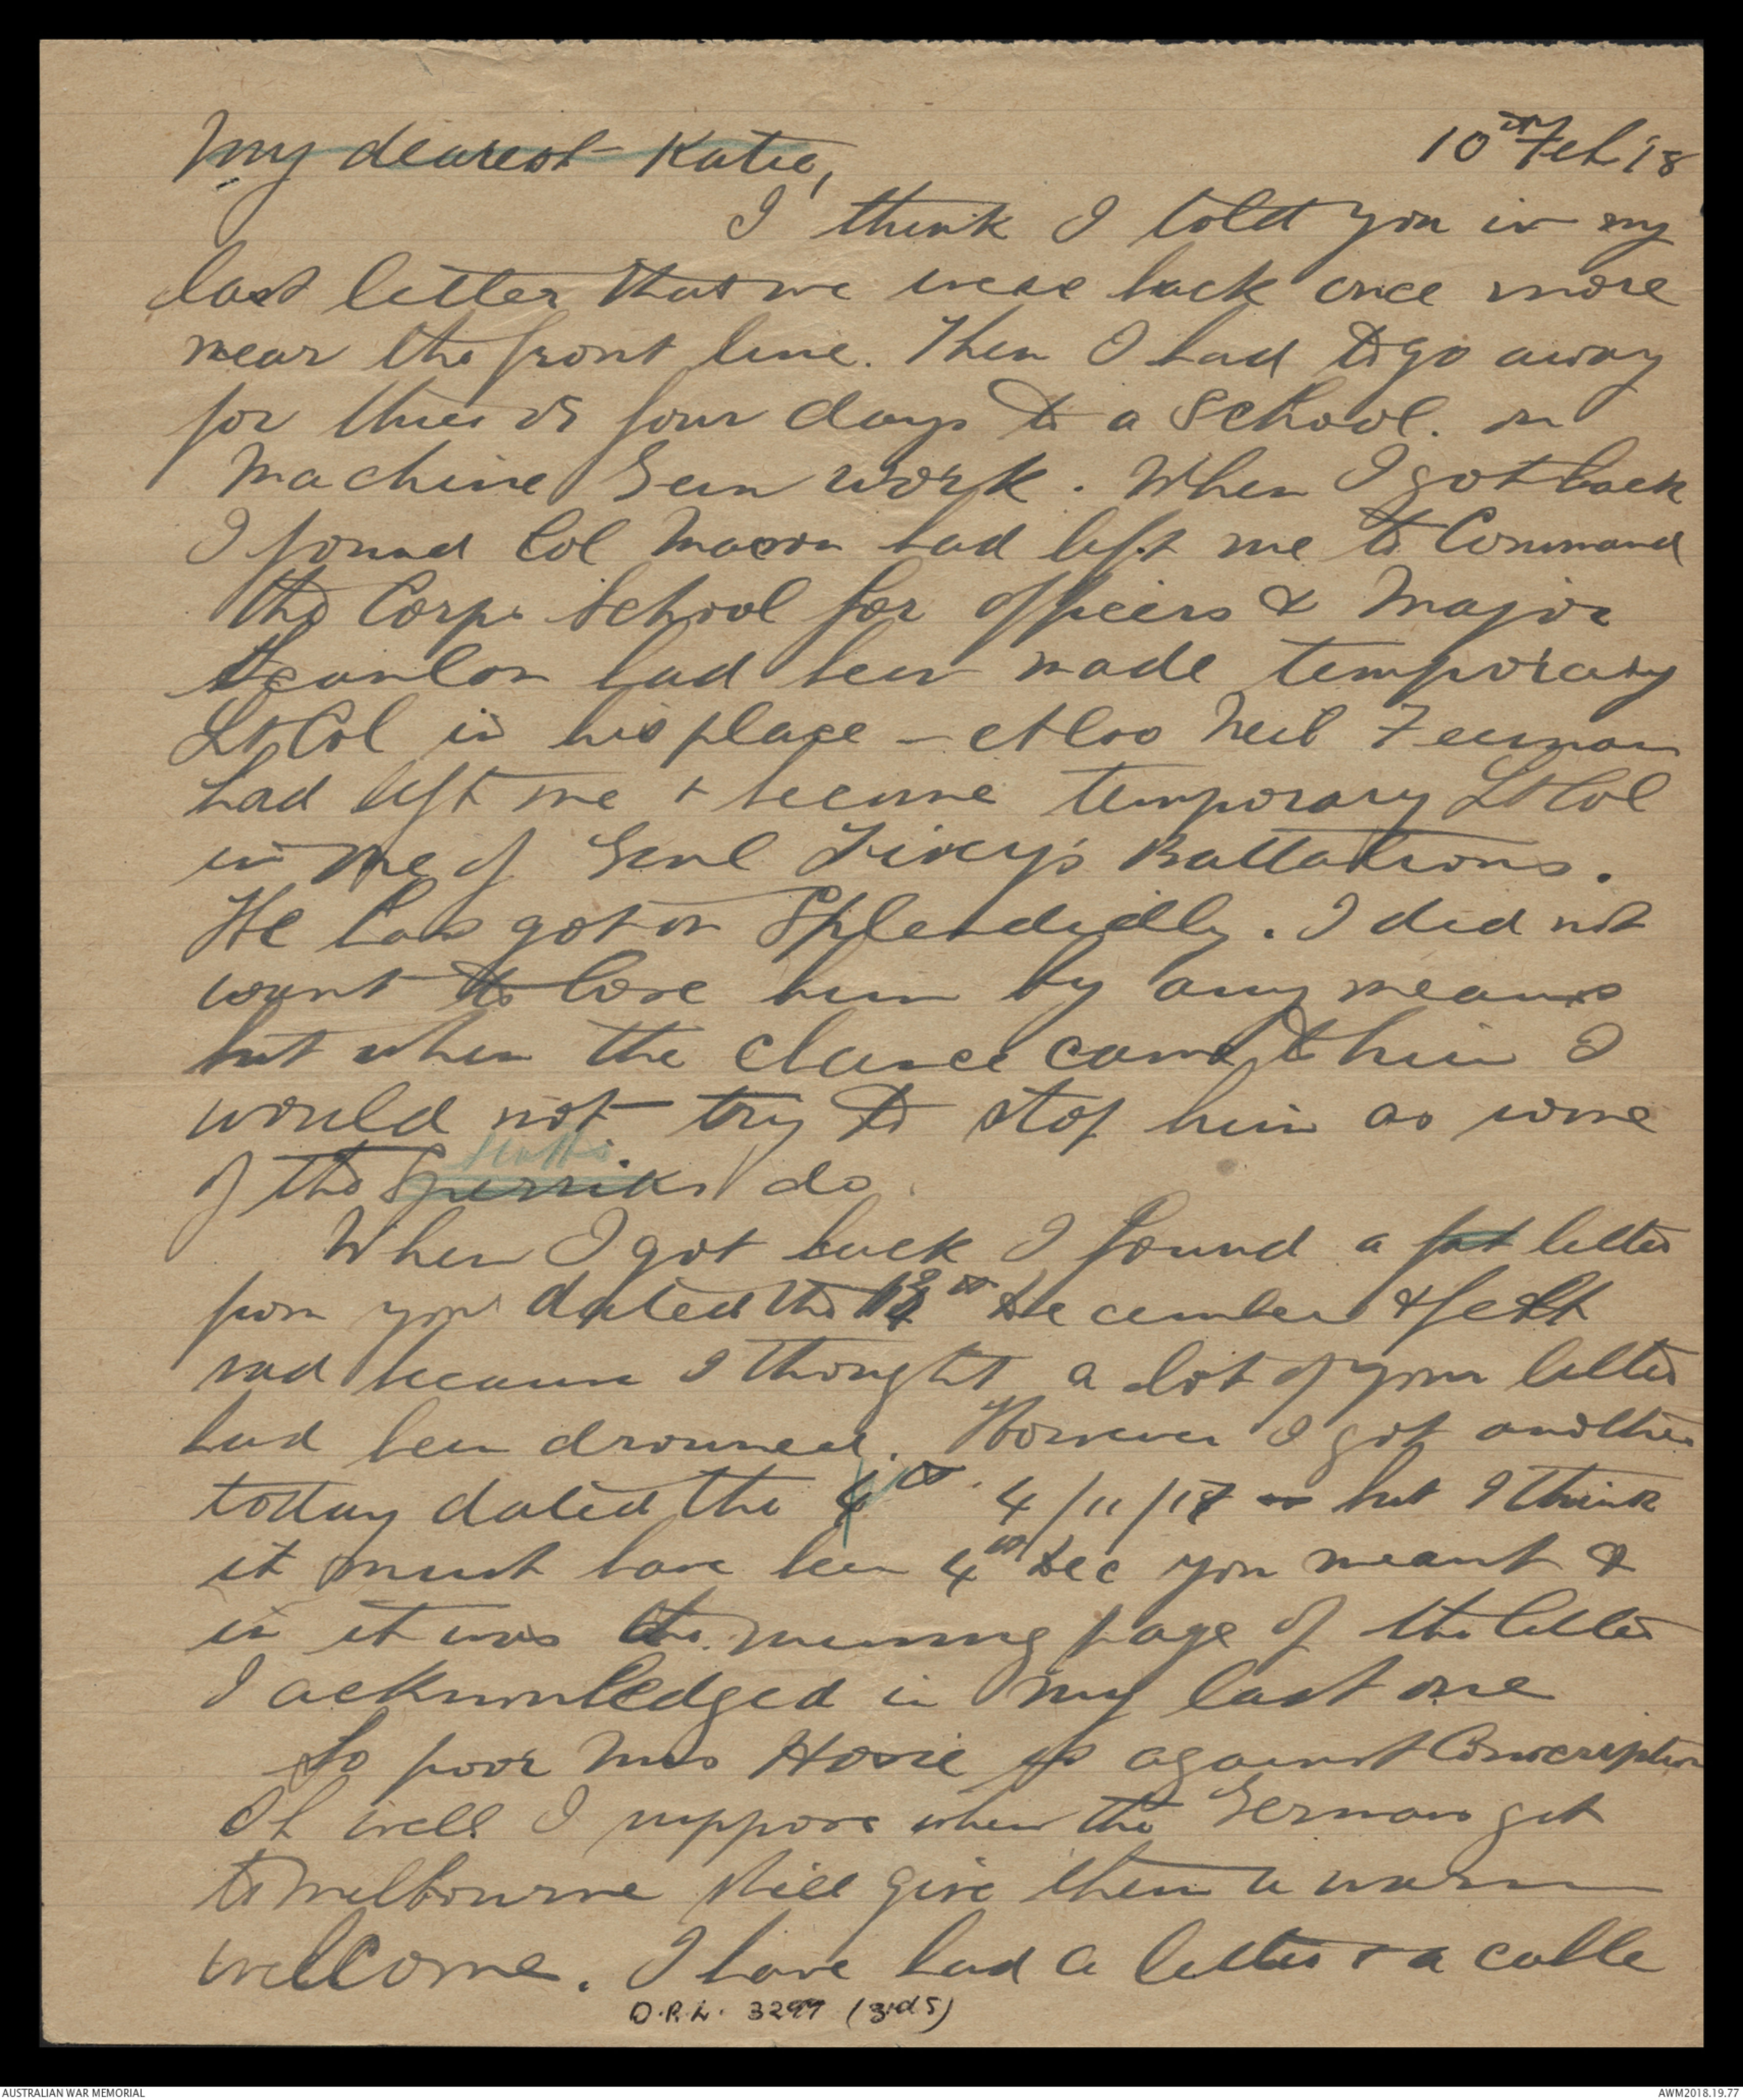 My dearest Katie,
10th Feb '18
I think I told you in my
last letter that we were back once more
near the front line. Then I had to go away
for three or four days to a School. on
Machine Gun work. When I got back
I found Col Mason had left me to Command
the Corps School for officers & Major
Scanlon had been made temporary
Lt Col in his place - Also Neil Freeman
had left me + become temporary Lt Col
in one of Genl Tivey's Battalions.
He has got on Splendidly. I did not
want to lose him by any means
but when the chance came to him I
would not try to stop him as some
of the do.
When I got back I found a fat letter
from you dated the December & felt
sad because I thought a lot of your letters
had been drowned. However I got another
today dated the 4th. 4/11/17 but I think
it must have been 4th Dec you meant &
in it was the missing page of the letter
I acknowledged in my last one
So poor Mrs is against Conscription
Oh well I suppose when the Germans get
to Melbourne she'll give them a warm
wellcome. I have had a letter + a cable
O.R.L. 3299 (3rd S)
AUSTRALIAN WAR MEMORIAL
AWM2018.19.77